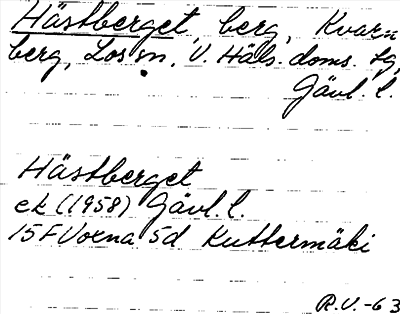 Hästberget, berg, Kvarn
berg, Los sn, V. Häls. doms. sg,
Gävl. l.
Hästberget
ek (1958) Gävl. l.
15F Voxna 5d Kuttermäki
R.V. -63